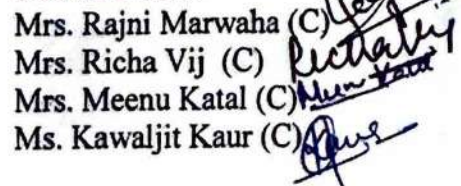 Mrs. Rajni Marwaha (C)
Mrs. Richa Vij (C)
Mrs. Meenu Katal (C)
Ms. Kawaljit Kaur (C)